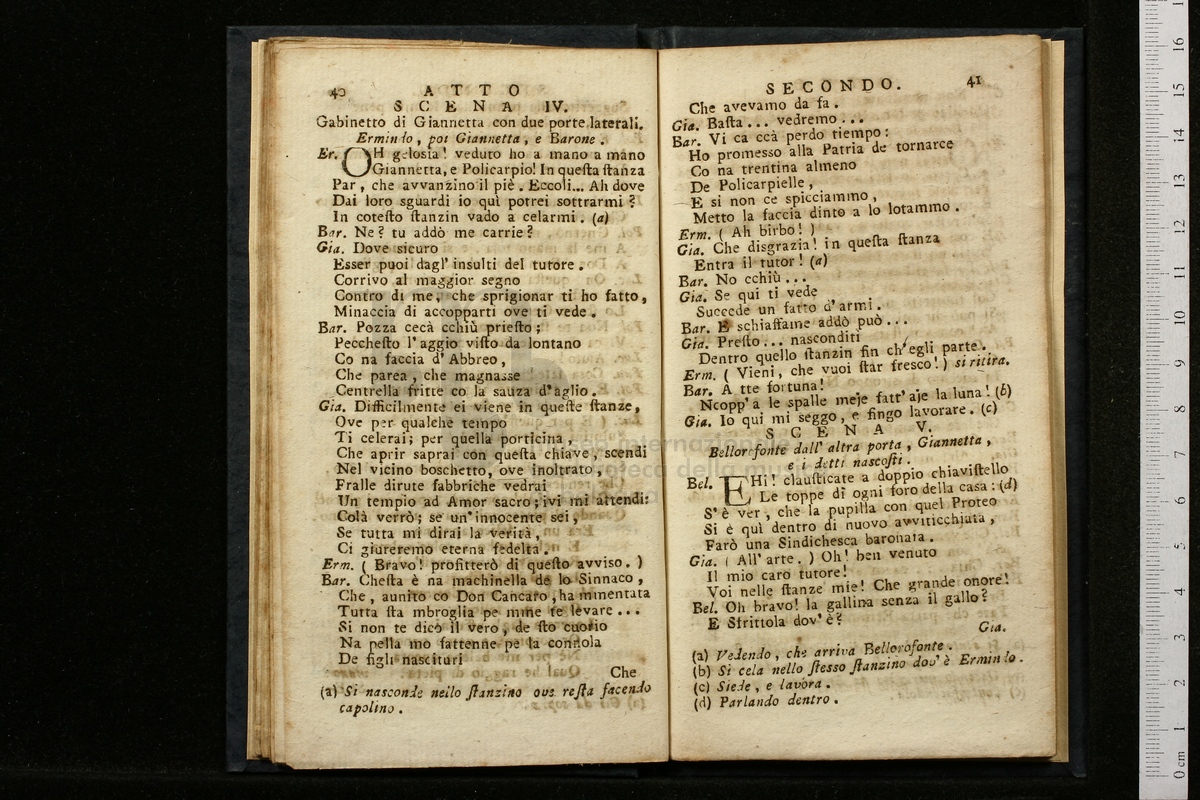 40 ATTO
SCENA IV.
Gabinetto di Giannetta con due porte laterali.
Erminio, poi Giannetta, e Barone.
Er. OH gelosia! veduto ho a mano a mano
Giannetta, e Policarpio! In questa stanza
Par, che avvanzino il piè. Eccoli... Ah dove
Dai loro sguardi io quì potrei sottrarmi?
In cotesto stanzin vado a celarmi. (a)
Bar. Ne? tu addò me carrie?
Gia. Dove sicuro
Esser puoi dagl' insulti del tutore.
Corrivo al maggior segno
Contro di me, che sprigionar ti ho fatto,
Minaccia di accopparti ove ti vede.
Bar. Pozza cecà cchiù priesto;
Pecchesto l'aggio visto da lontano
Co na faccia d'Abbreo,
Che parea, che magnasse
Centrella fritte co la sauza d'aglio.
Gia. Difficilmente ei viene in queste stanze,
Ove per qualche tempo
Ti celerai; per quella porticina,
Che aprir saprai con questa chiave, scendi
Nel vicino boschetto, ove inoltrato,
Fralle dirute fabbriche vedrai
Un tempio ad Amor sacro; ivi mi attendi:
Colà verrò; se un'innocente sei,
Se tutta mi dirai la verità,
Ci giureremo eterna fedeltà.
Erm. ( Bravo! profitterò di questo avviso. )
Bar. Chesta è na machinella de lo Sinnaco,
Che, aunito co Don Cancaro, ha mmentata
Tutta sta mbroglia pe mme te levare...
Si non te dicò il vero, de sto cuorio
Na pella mo fattenne pe la connola
De figli nascituri
Che
(a) Si nasconde nello stanzino ove resta facendo
capolino.
SECONDO. 41
Che avevamo da fa.
Gia. Basta... vedremo...
Bar. Vi ca ccà perdo tiempo:
Ho promesso alla Patria de tornarce
Co na trentina almeno
De Policarpielle,
E si non ce spicciammo,
Metto la faccia dinto a lo lotammo.
Erm. ( Ah birbo! )
Gia. Che disgrazia! in questa stanza
Entra il tutor! (a)
Bar. No cchiù...
Gia. Se qui ti vede
Succede un fatto d'armi.
Bar. E schiaffame addò può...
Gia. Presto... nasconditi
Dentro quello stanzin fin ch'egli parte.
Erm. ( Vieni, che vuoi star fresco! ) si ritira.
Bar. A tte fortuna!
Ncopp'a le spalle meje fatt'aje la luna! (b)
Gia. Io qui mi seggo, e fingo lavorare. (c)
SCENA V.
Bellorofonte dall'altra porta, Giannetta,
e i detti nascosti.
Bel. EHi! clausticate a doppio chiavistello
Le toppe di ogni foro della casa: (d)
S'è ver, che la pupilla con quel Proteo
Si è quì dentro di nuovo avviticchiata,
Farò una Sindichesca baronata.
Gia. ( All'arte. ) Oh! ben venuto
Il mio caro tutore!
Voi nelle stanze mie! Che grande onore!
Bel. Oh bravo! la gallina senza il gallo?
E Strittola dov'è?
Gia.
(a) Vedendo, che arriva Bellorofonte.
(b) Si cela nello stesso stanzino dov'è Erminio.
(c) Siede, e lavora.
(d) Parlando dentro.